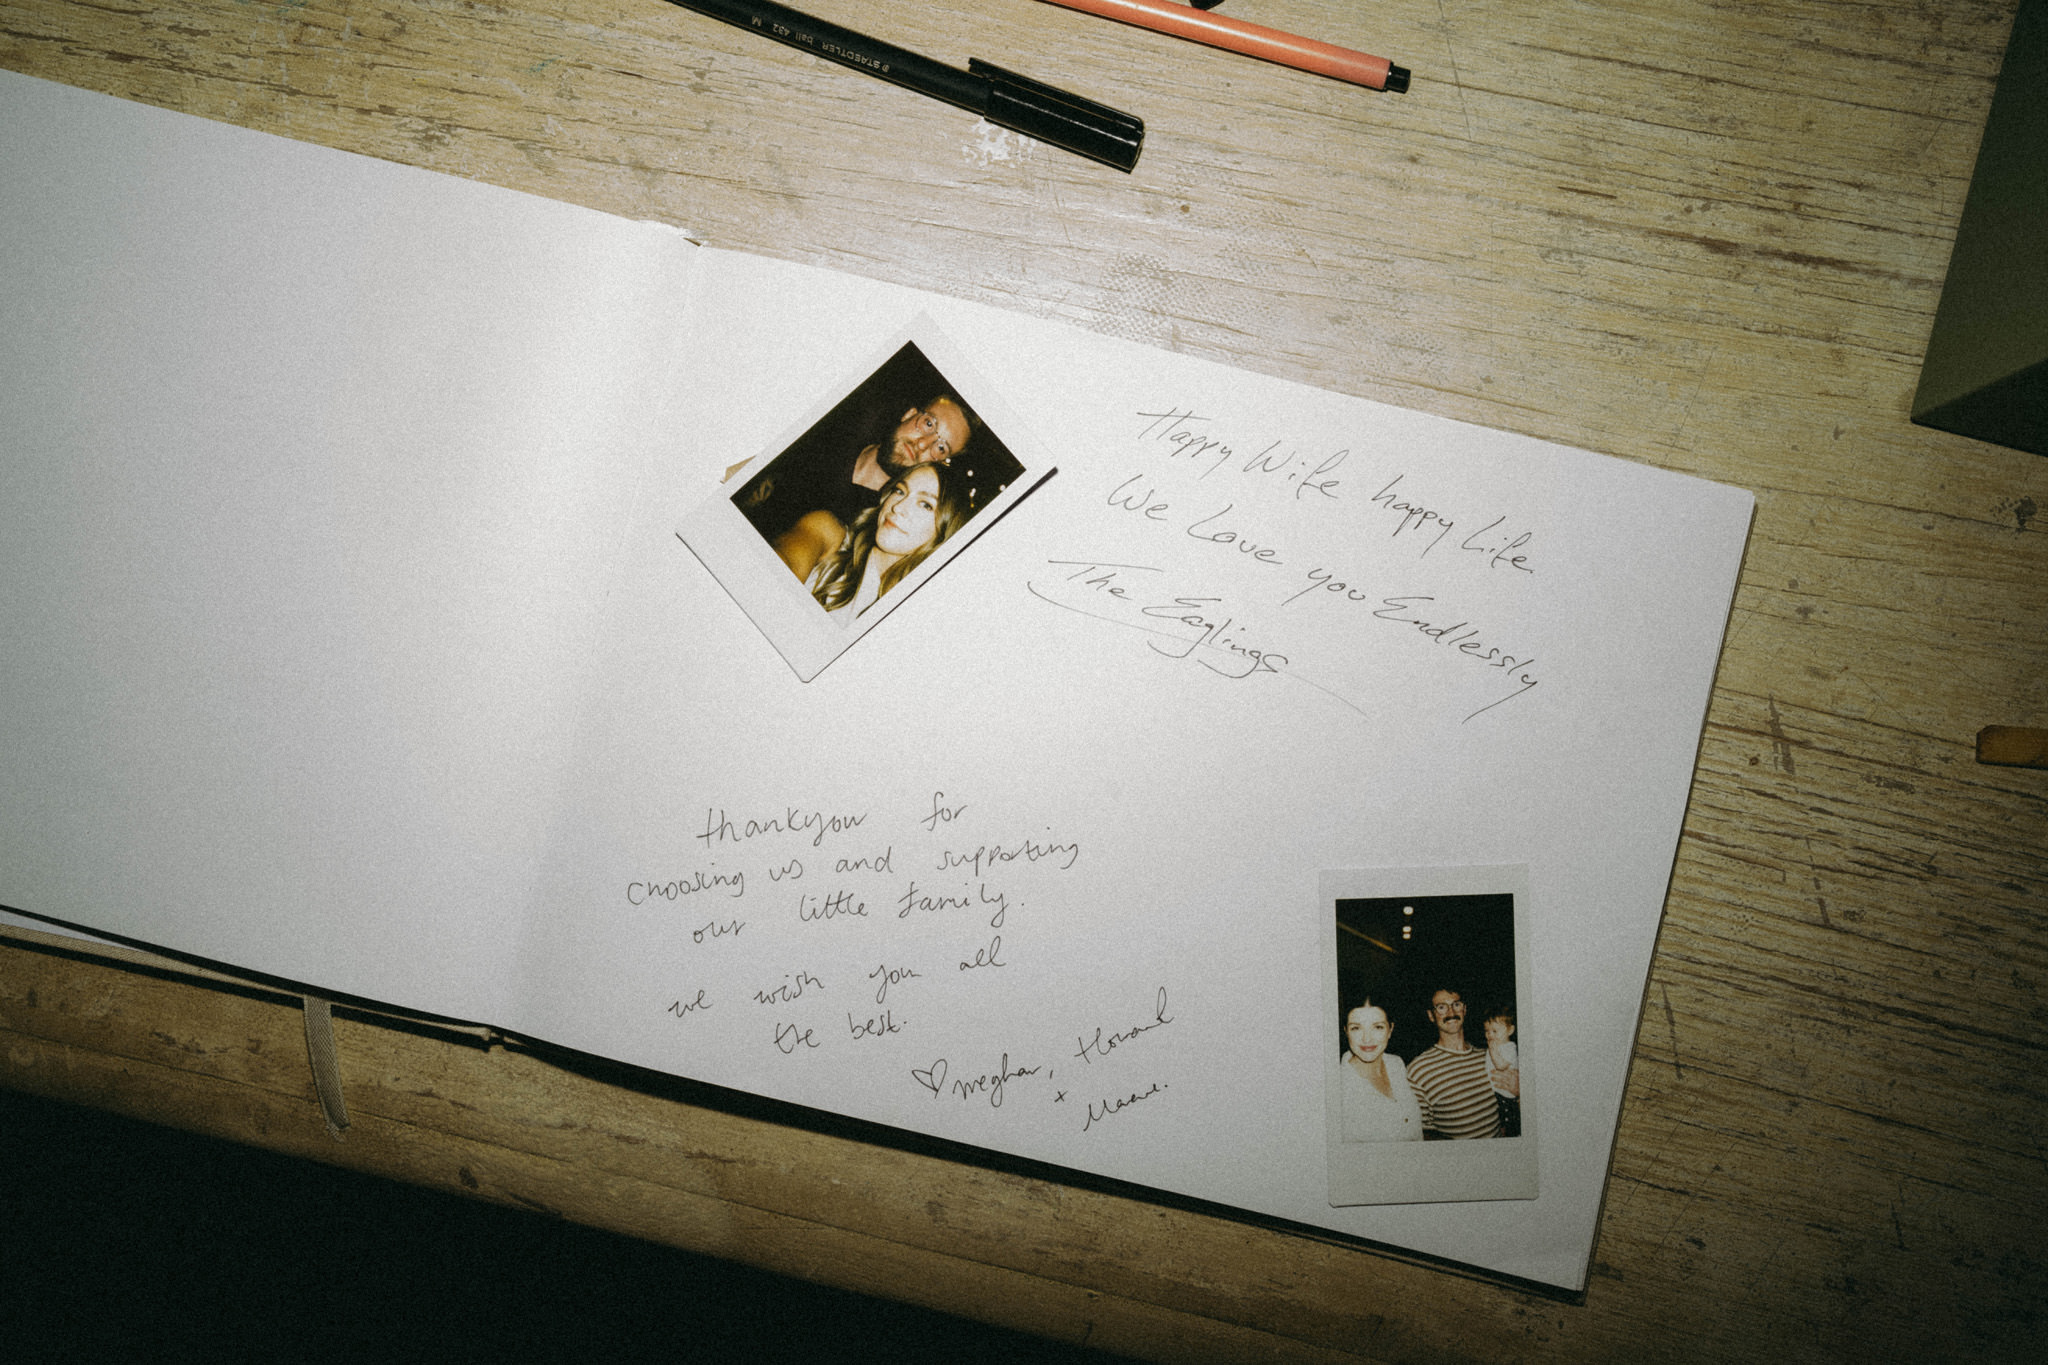 STAEDTLER ball 432 M
Happy Wife happy Life.
We Love you Endlessly
The Eaglings
thankyou for
choosing us and supporting
our little family.
we wish you all
the best.
♡ Meghan, Howard
+